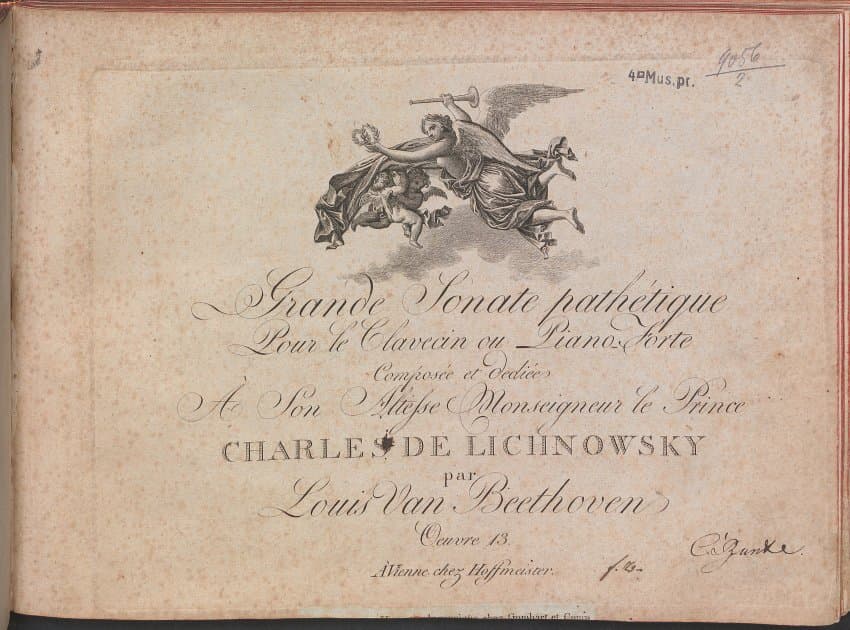 4°Mus.pr.
9056
2
Grande Sonate pathétique
Pour le Clavecin ou Piano-Forte
Composée et dediée
À Son Altesse Monseigneur le Prince
CHARLES DE LICHNOWSKY
par
Louis Van Beethoven
Oeuvre 13
À Vienne chez Hoffmeister.
chez Gombart et Comp.